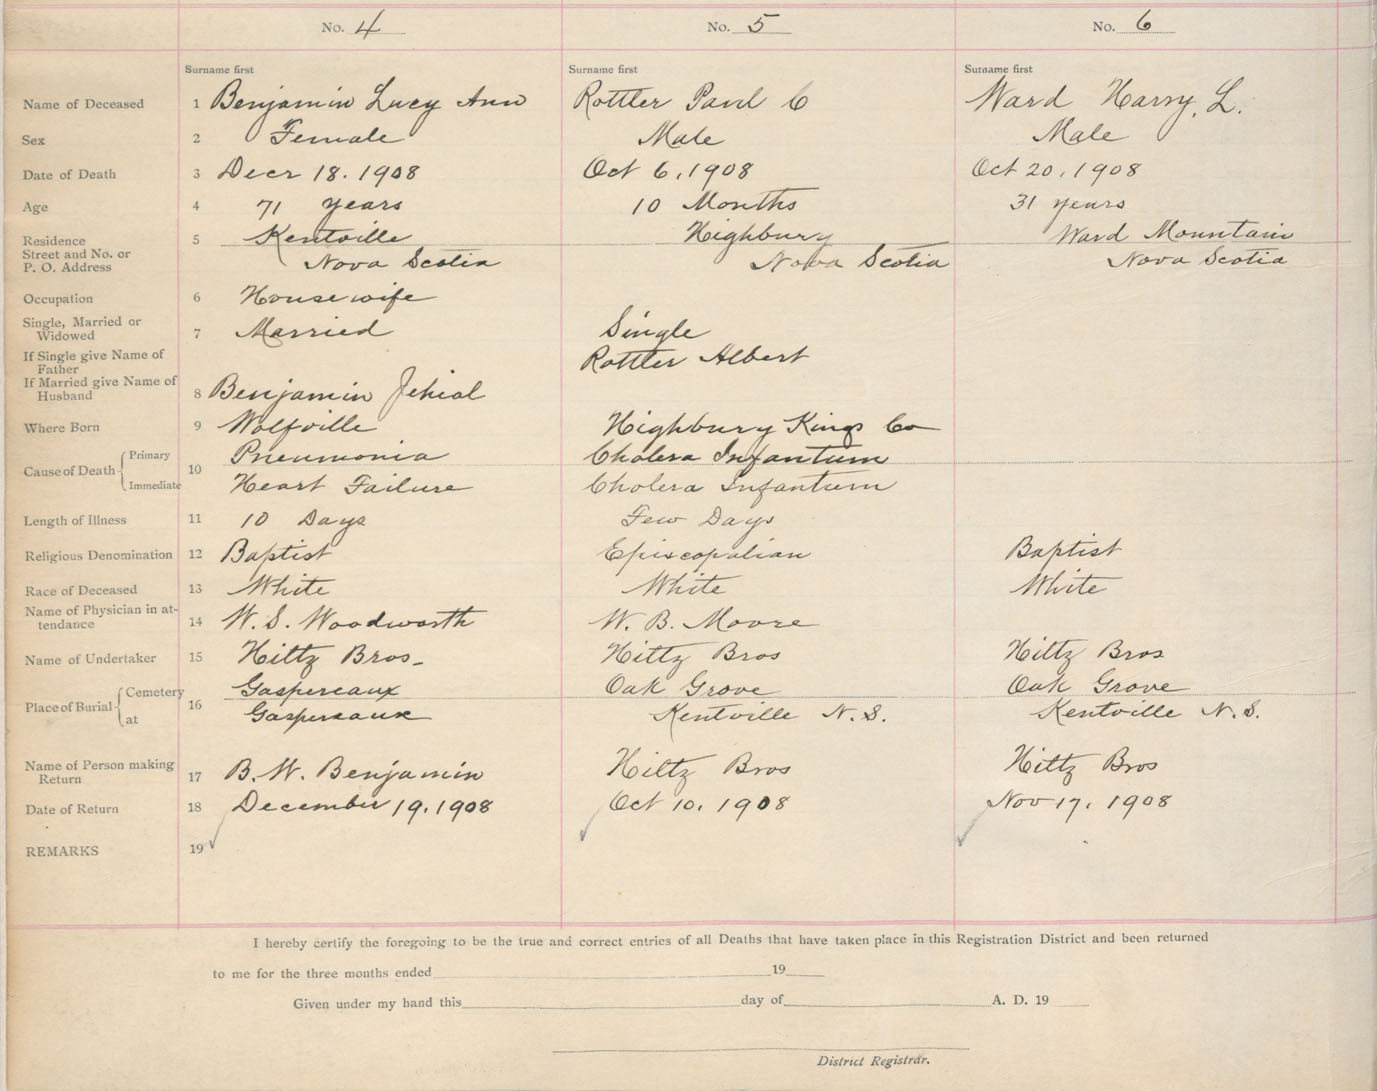 No. 4 No. 5 No. 6
Surname first Surname first Surname first
Name of Deceased 1 Benjamin Lucy Ann Rottler Paul C Ward Harry, L.
Sex 2 Female Male Male
Date of Death 3 Decr 18. 1908 Oct 6, 1908 Oct 20, 1908
Age 4 71 years 10 Months 31 years
Residence 5 Kentville Highbury Ward Mountain
Street and No. or
P. O. Address Nova Scotia Nova Scotia Nova Scotia
Occupation 6 Housewife
Single, Married or
Widowed 7 Married Single
If Single give Name of
Father Rottler Albert
If Married give Name of
Husband 8 Benjamin Jehial
Where Born 9 Wolfville Highbury Kings Co
Primary Pneumonia Cholera Infantum
Cause of Death 10
Immediate Heart Failure Cholera Infantum
Length of Illness 11 10 Days Few Days
Religious Denomination 12 Baptist Episcopalian Baptist
Race of Deceased 13 White White White
Name of Physician in at-
tendance 14 W. S. Woodworth W. B. Moore
Name of Undertaker 15 Hiltz Bros. Hiltz Bros Hiltz Bros
Cemetery Gaspereaux Oak Grove Oak Grove
Place of Burial 16
at Gaspereaux Kentville N. S. Kentville N. S.
Name of Person making
Return 17 B. W. Benjamin Hiltz Bros Hiltz Bros
Date of Return 18 December 19, 1908 Oct 10, 1908 Nov 17, 1908
REMARKS 19
I hereby certify the foregoing to be the true and correct entries of all Deaths that have taken place in this Registration District and been returned
to me for the three months ended 19
Given under my hand this day of A. D. 19
District Registrar.